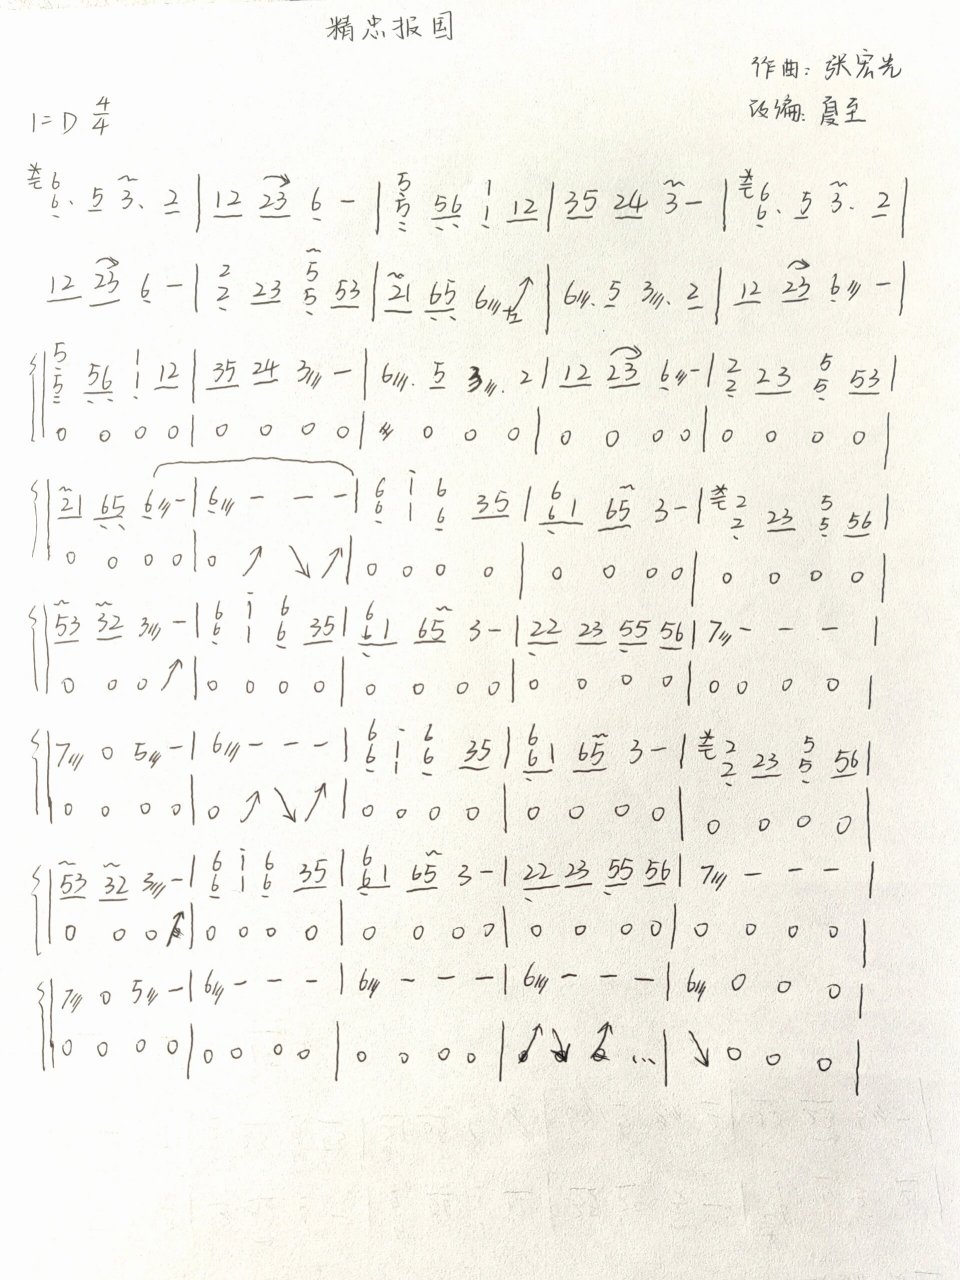 精忠报国
作曲: 张宏光
改编: 夏至
1=D 4/4
6 6. 5 3. 2 | 12 23 6 - | 5 5 56 1 1 12 | 35 24 3 - | 6 6. 5 3. 2 |
12 23 6 - | 2 2 23 5 5 53 | 21 65 6/// ↗ | 6///. 5 3///. 2 | 12 23 6/// - |
5 5 56 1 1 12 | 35 24 3/// - | 6///. 5 3///. 2 | 12 23 6/// - | 2 2 23 5 5 53 |
0 0 0 0 | 0 0 0 0 | 0 0 0 | 0 0 0 0 | 0 0 0 0 |
21 65 6/// - | 6/// - - - | 6 6 i 1 6 6 35 | 6 61 65 3 - | 2 2 23 5 5 56 |
0 0 0 0 | 0 ↗ ↘ ↗ | 0 0 0 0 | 0 0 0 0 | 0 0 0 0 |
53 32 3/// - | 6 6 i 1 6 6 35 | 6 61 65 3 - | 22 23 55 56 | 7/// - - - |
0 0 0 ↗ | 0 0 0 0 | 0 0 0 0 | 0 0 0 0 | 0 0 0 0 |
7/// 0 5/// - | 6/// - - - | 6 6 i 1 6 6 35 | 6 61 65 3 - | 2 2 23 5 5 56 |
0 0 0 0 | 0 ↗ ↘ ↗ | 0 0 0 0 | 0 0 0 0 | 0 0 0 0 |
53 32 3/// - | 6 6 i 1 6 6 35 | 6 61 65 3 - | 22 23 55 56 | 7/// - - - |
0 0 0 ↗ | 0 0 0 0 | 0 0 0 0 | 0 0 0 0 | 0 0 0 0 |
7/// 0 5/// - | 6/// - - - | 6/// - - - | 6/// - - - | 6/// 0 0 0 |
0 0 0 0 | 0 0 0 0 | 0 0 0 0 | ↗ ↘ ↗ ... | ↘ 0 0 0 |